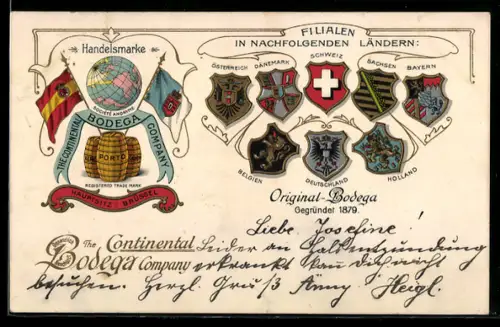 Handelsmarke
SOCIÉTÉ ANONYME
THE CONTINENTAL BODEGA COMPANY
PORTO
REGISTERED TRADE MARK
HAUPTSITZ: BRÜSSEL
FILIALEN
IN NACHFOLGENDEN LÄNDERN:
ÖSTERREICH DÄNEMARK SCHWEIZ SACHSEN BAYERN
BELGIEN DEUTSCHLAND HOLLAND
Original-Bodega
Gegründet 1879.
The Continental
Bodega Company
Liebe Josefine!
Leider an Halsentzündung
erkrankt kan dich nicht
besuchen. Herzl. Grus Änny Heigl.